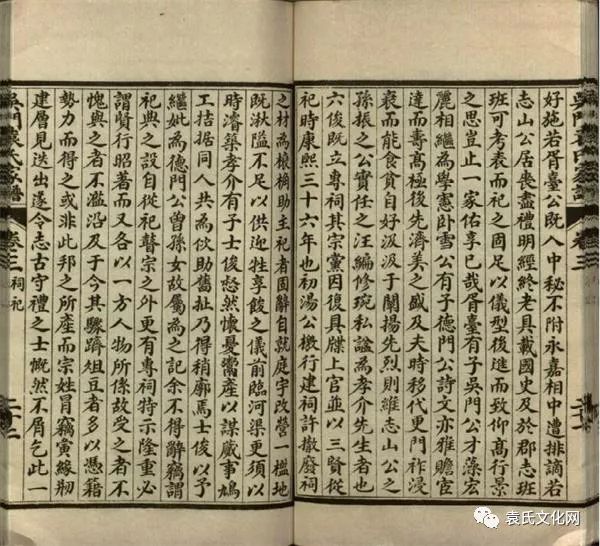 好施若胥臺公既入中秘不附永嘉相中遭排謫若
志山公居喪盡禮明經終老具載國史及於郡志班
班可考表而祀之固足以儀型後進而致仰高行景
之思豈止一家佑享已哉胥臺有子吳門公才藻宏
麗相繼為學憲卧雪公有子德門公詩文亦雅贍宦
達而壽髙極後先濟美之盛及夫時移代更門祚浸
衰而能食貧自好汲汲于闡揚先烈則維志山公之
孫振之公實任之汪編修琬私諡為孝介先生者也
六俊既立專祠其宗黨因復具牒上官並以三賢從
祀時康熙三十六年也初湯公檄行建祠許撤廢祠
之材為榱桷助主祀者固辭自就庭宇改營一楹地
既湫隘不足以供迎牲享餕之儀前臨河渠更須以
時濬築孝介有子士俊惄然懷憂鬻產以謀蕆事鳩
工拮据同人共為佽助舊址乃得稍廓焉士俊以予
繼妣為德門公曾孫女故屬為之記余不得辭竊謂
祀典之設自從祀瞽宗之外更有專祠特示隆重必
謂賢行昭著而又各以一方人物所係故受之者不
愧與之者不濫沿及于今其驟躋俎豆者多以憑籍
勢力而得之或非此邦之所產而宗姓冒竊夤緣剏
建層見迭出遂令志古守禮之士慨然不屑乞此一
吳門袁氏家譜
卷三
吳門袁氏家譜
卷三 祠祀
二十二
袁氏文化网